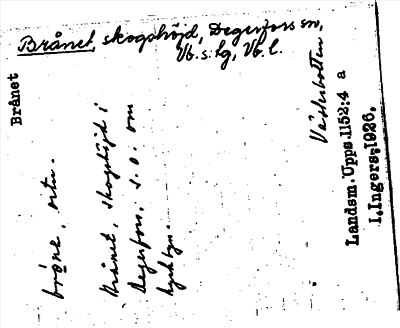 Brånet, skogshöjd, Degerfors sn,
Vb. s. lg, Vb. l.
Brånet
Västerbotten
brǫne, ortn.
Brånet, skogshöjd i
Degerfors, s.o. om
kyrkbyn.
Landsm. Upps. 1152:4 a
I. Ingers, 1926.